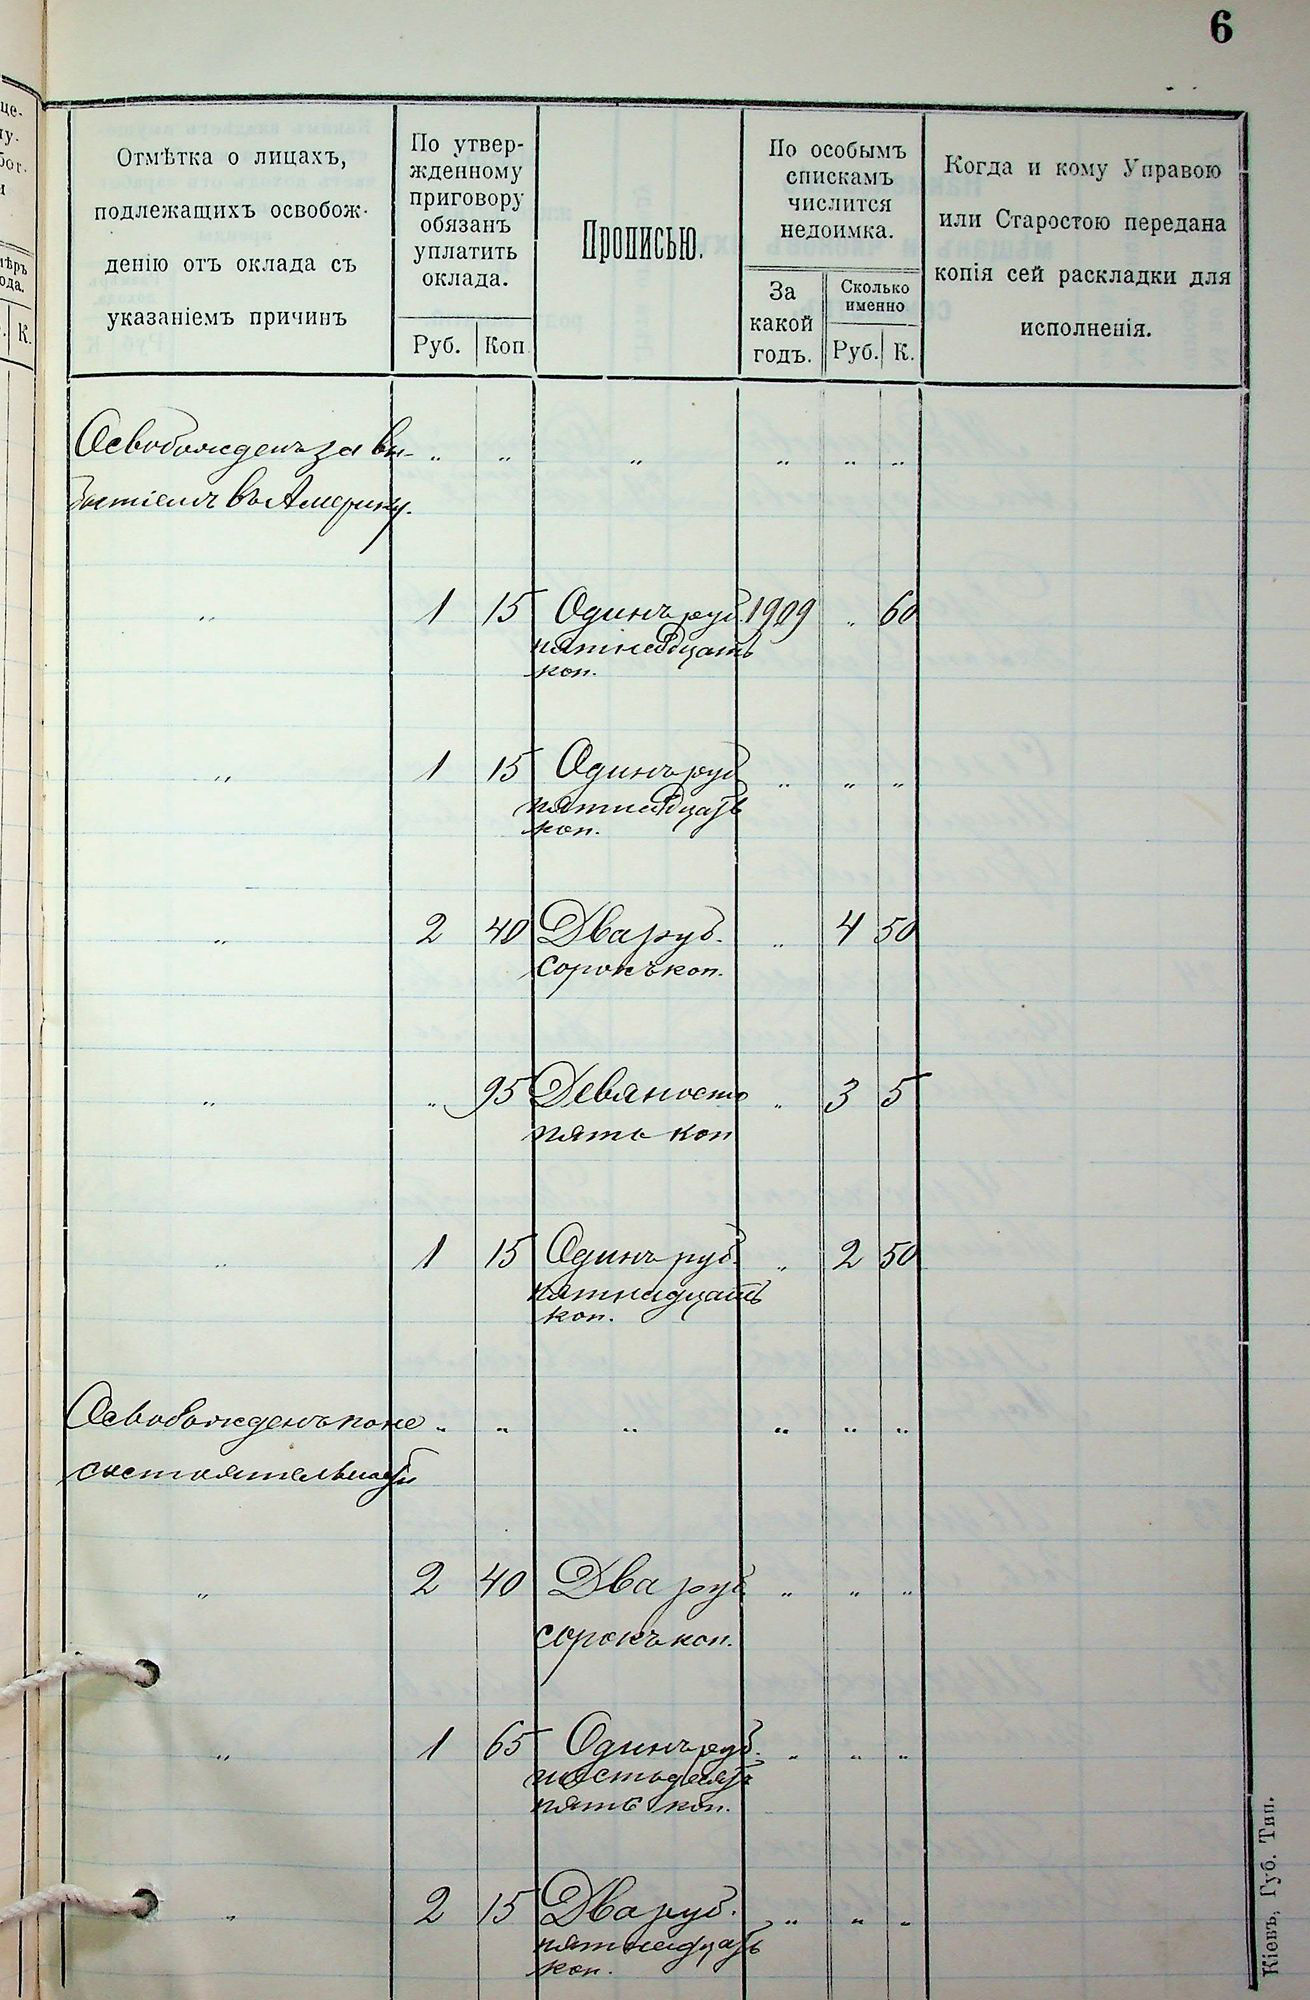 6
Отмѣтка о лицахъ,
подлежащихъ освобож-
денію отъ оклада съ
указаніемъ причинъ
По утвер-
жденному
приговору
обязанъ
уплатить
оклада.
Руб. Коп
Прописью.
По особымъ
спискамъ
числится
недоимка.
За
какой
годъ.
Сколько
именно
Руб. К.
Когда и кому Управою
или Старостою передана
копія сей раскладки для
исполненія.
Освобожденъ за вы- „ „ „ „ „ „
бытіемъ въ Америку.
„ 1 15 Одинъ руб. 1909 „ 60
пятнадцать
коп.
„ 1 15 Одинъ руб „ „ „
пятнадцать
коп.
„ 2 40 Два руб. „ 4 50
сорокъ коп.
„ „ 95 Девяносто „ 3 5
пять коп
„ 1 15 Одинъ руб. „ 2 50
пятнадцать
коп.
Освобожденъ по не „ „ „ „ „ „
состоятельности
„ 2 40 Два руб. „ „ „
сорокъ коп.
„ 1 65 Одинъ руб. „ „ „
шестьдесятъ
пять коп.
„ 2 15 Два руб. „ „ „
пятнадцать
коп.
Кіевъ, Губ. Тип.